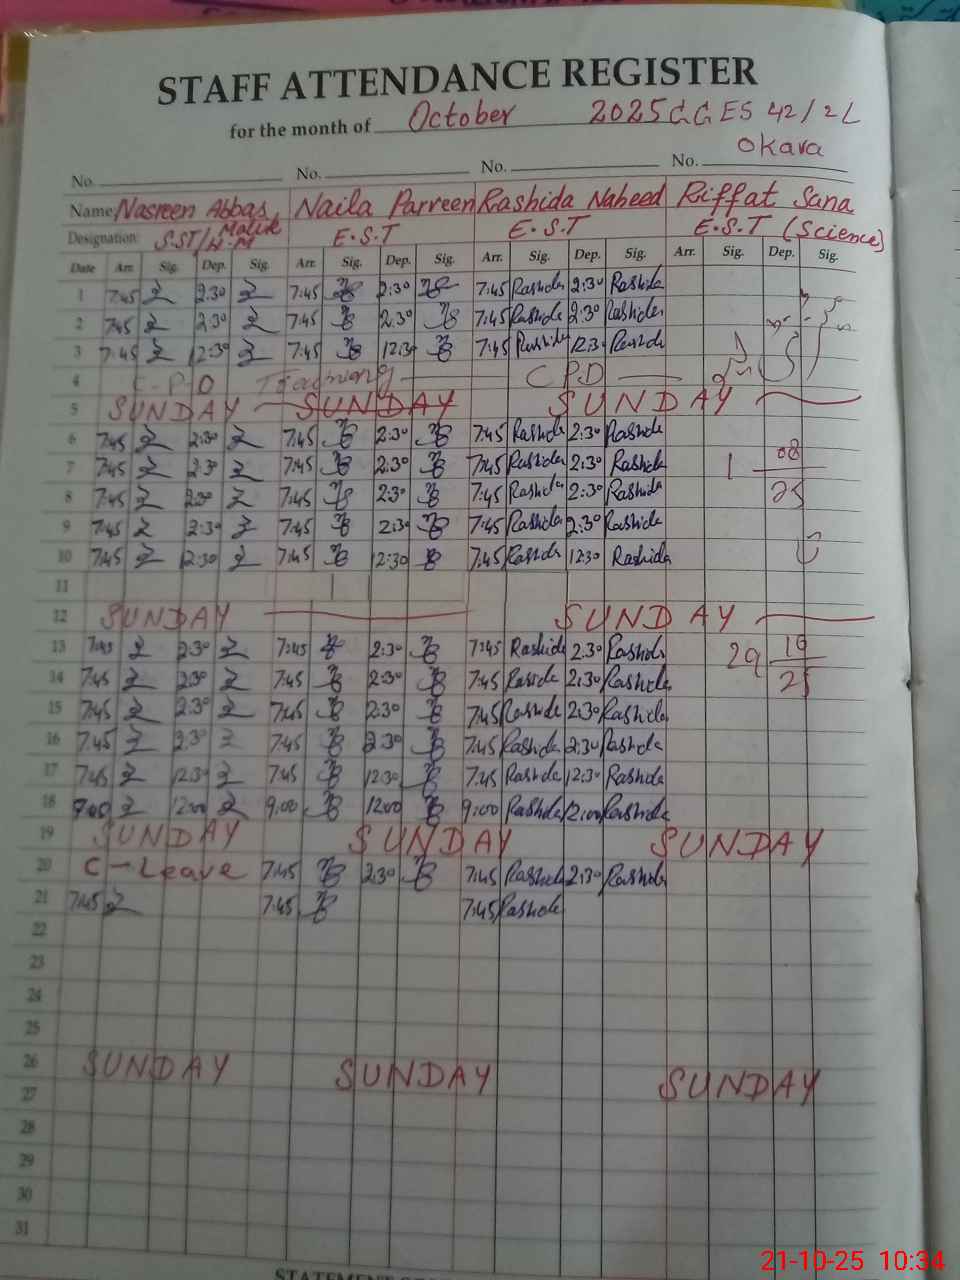 STAFF ATTENDANCE REGISTER
for the month of October 2025 GGES 42/2L
Okara
No. No. No. No.
Name Nasreen Abbas Naila Parveen Rashida Naheed Riffat Sana
Malik
Designation: S.ST/H.M E.S.T E.S.T E.S.T (Science)
Date Arr. Sig. Dep. Sig. Arr. Sig. Dep. Sig. Arr. Sig. Dep. Sig. Arr. Sig. Dep. Sig.
1 7:45 2:30 7:45 2:30 7:45 Rashida 2:30 Rashida
2 7:45 2:30 7:45 2:30 7:45 Rashida 2:30 Rashida
3 7:45 12:30 7:45 12:30 7:45 Rashida 12:30 Rashida
4 C.P.D Training CPD
5 SUNDAY SUNDAY SUNDAY
6 7:45 2:30 7:45 2:30 7:45 Rashida 2:30 Rashida
7 7:45 2:30 7:45 2:30 7:45 Rashida 2:30 Rashida 1 08
8 7:45 2:30 7:45 2:30 7:45 Rashida 2:30 Rashida 25
9 7:45 2:30 7:45 2:30 7:45 Rashida 2:30 Rashida
10 7:45 12:30 7:45 12:30 7:45 Rashida 12:30 Rashida
11
12 SUNDAY SUNDAY
13 7:45 2:30 7:45 2:30 7:45 Rashida 2:30 Rashida 29 19
14 7:45 2:30 7:45 2:30 7:45 Rashida 2:30 Rashida 25
15 7:45 2:30 7:45 2:30 7:45 Rashida 2:30 Rashida
16 7:45 2:30 7:45 2:30 7:45 Rashida 2:30 Rashida
17 7:45 12:30 7:45 12:30 7:45 Rashida 12:30 Rashida
18 9:00 12:00 9:00 12:00 9:00 Rashida 12:00 Rashida
19 SUNDAY SUNDAY SUNDAY
20 C-Leave 7:45 2:30 7:45 Rashida 2:30 Rashida
21 7:45 7:45 7:45 Rashida
22
23
24
25
26 SUNDAY SUNDAY SUNDAY
27
28
29
30
31
21-10-25 10:34